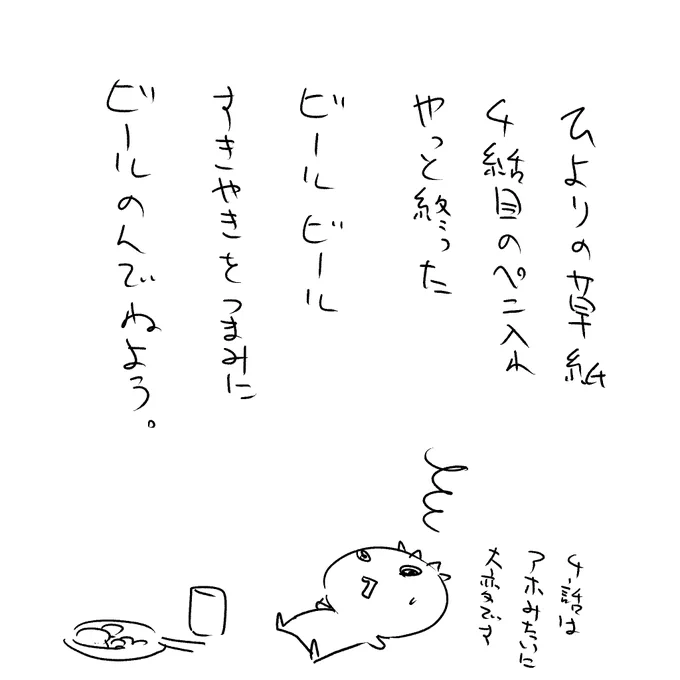 ひよりの草紙
4話目のペン入れ
やっと終った
ビールビール
すきやきをつまみに
ビールのんでねよう。
4話は
アホみたいに
大変です